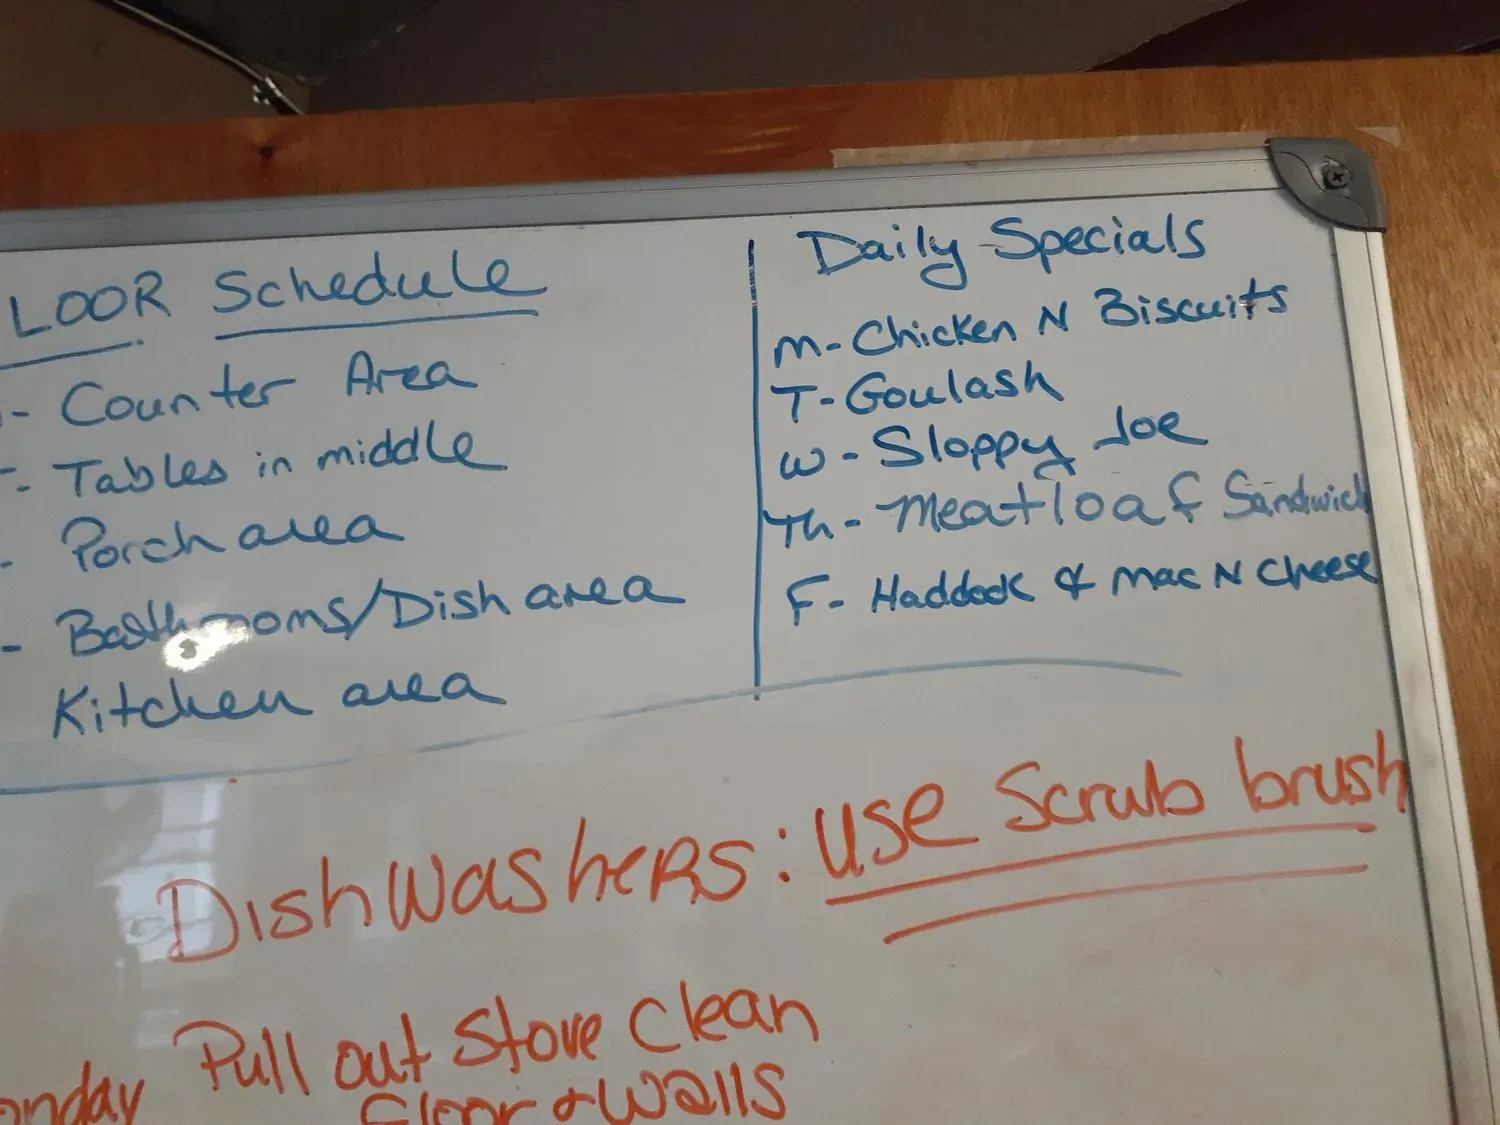 LOOR Schedule
- Counter Area
- Tables in middle
- Porch area
- Bathrooms/Dish area
Kitchen area
Daily Specials
M- Chicken N Biscuits
T- Goulash
W- Sloppy Joe
Th- Meatloaf Sandwich
F- Haddock & Mac N Cheese
DishWashers: use Scrub brush
onday Pull out Stove Clean
Floor & Walls